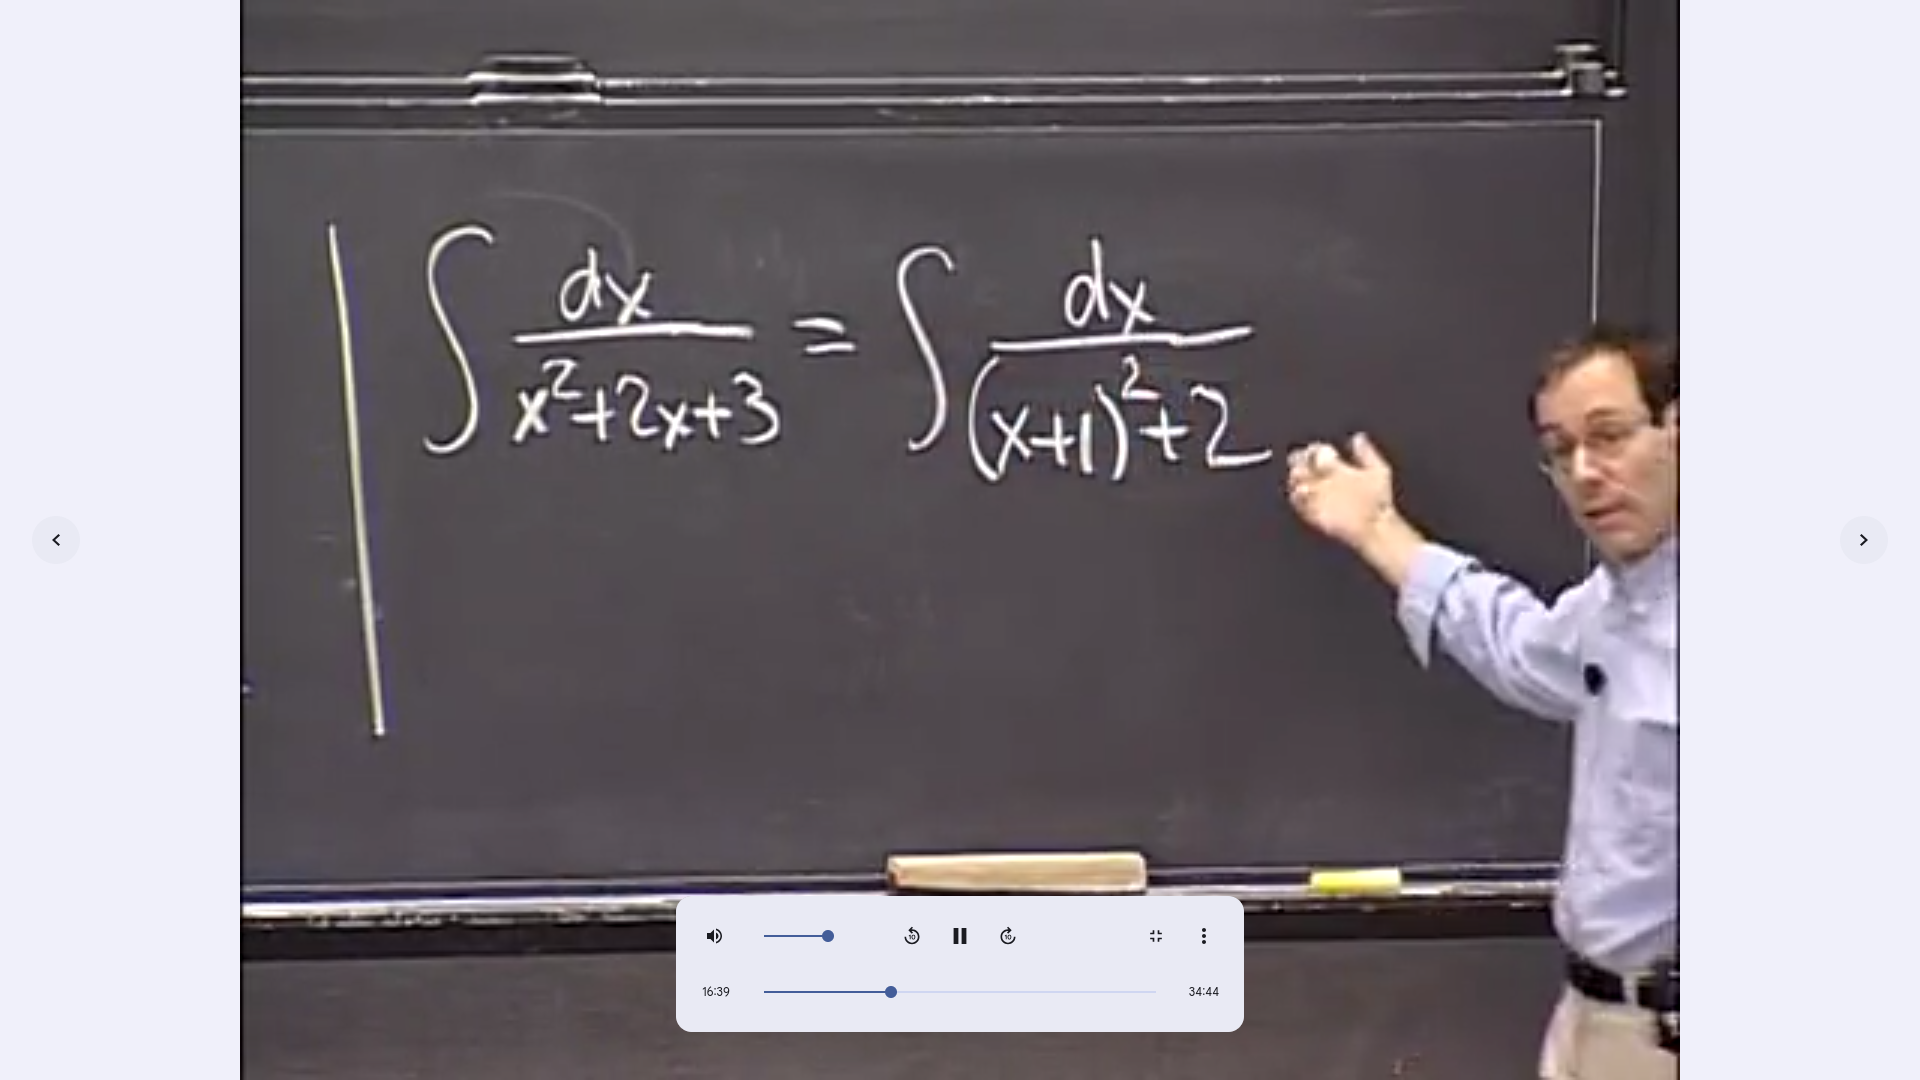 ∫ dx / (x²+2x+3) = ∫ dx / ((x+1)²+2)
16:39
34:44